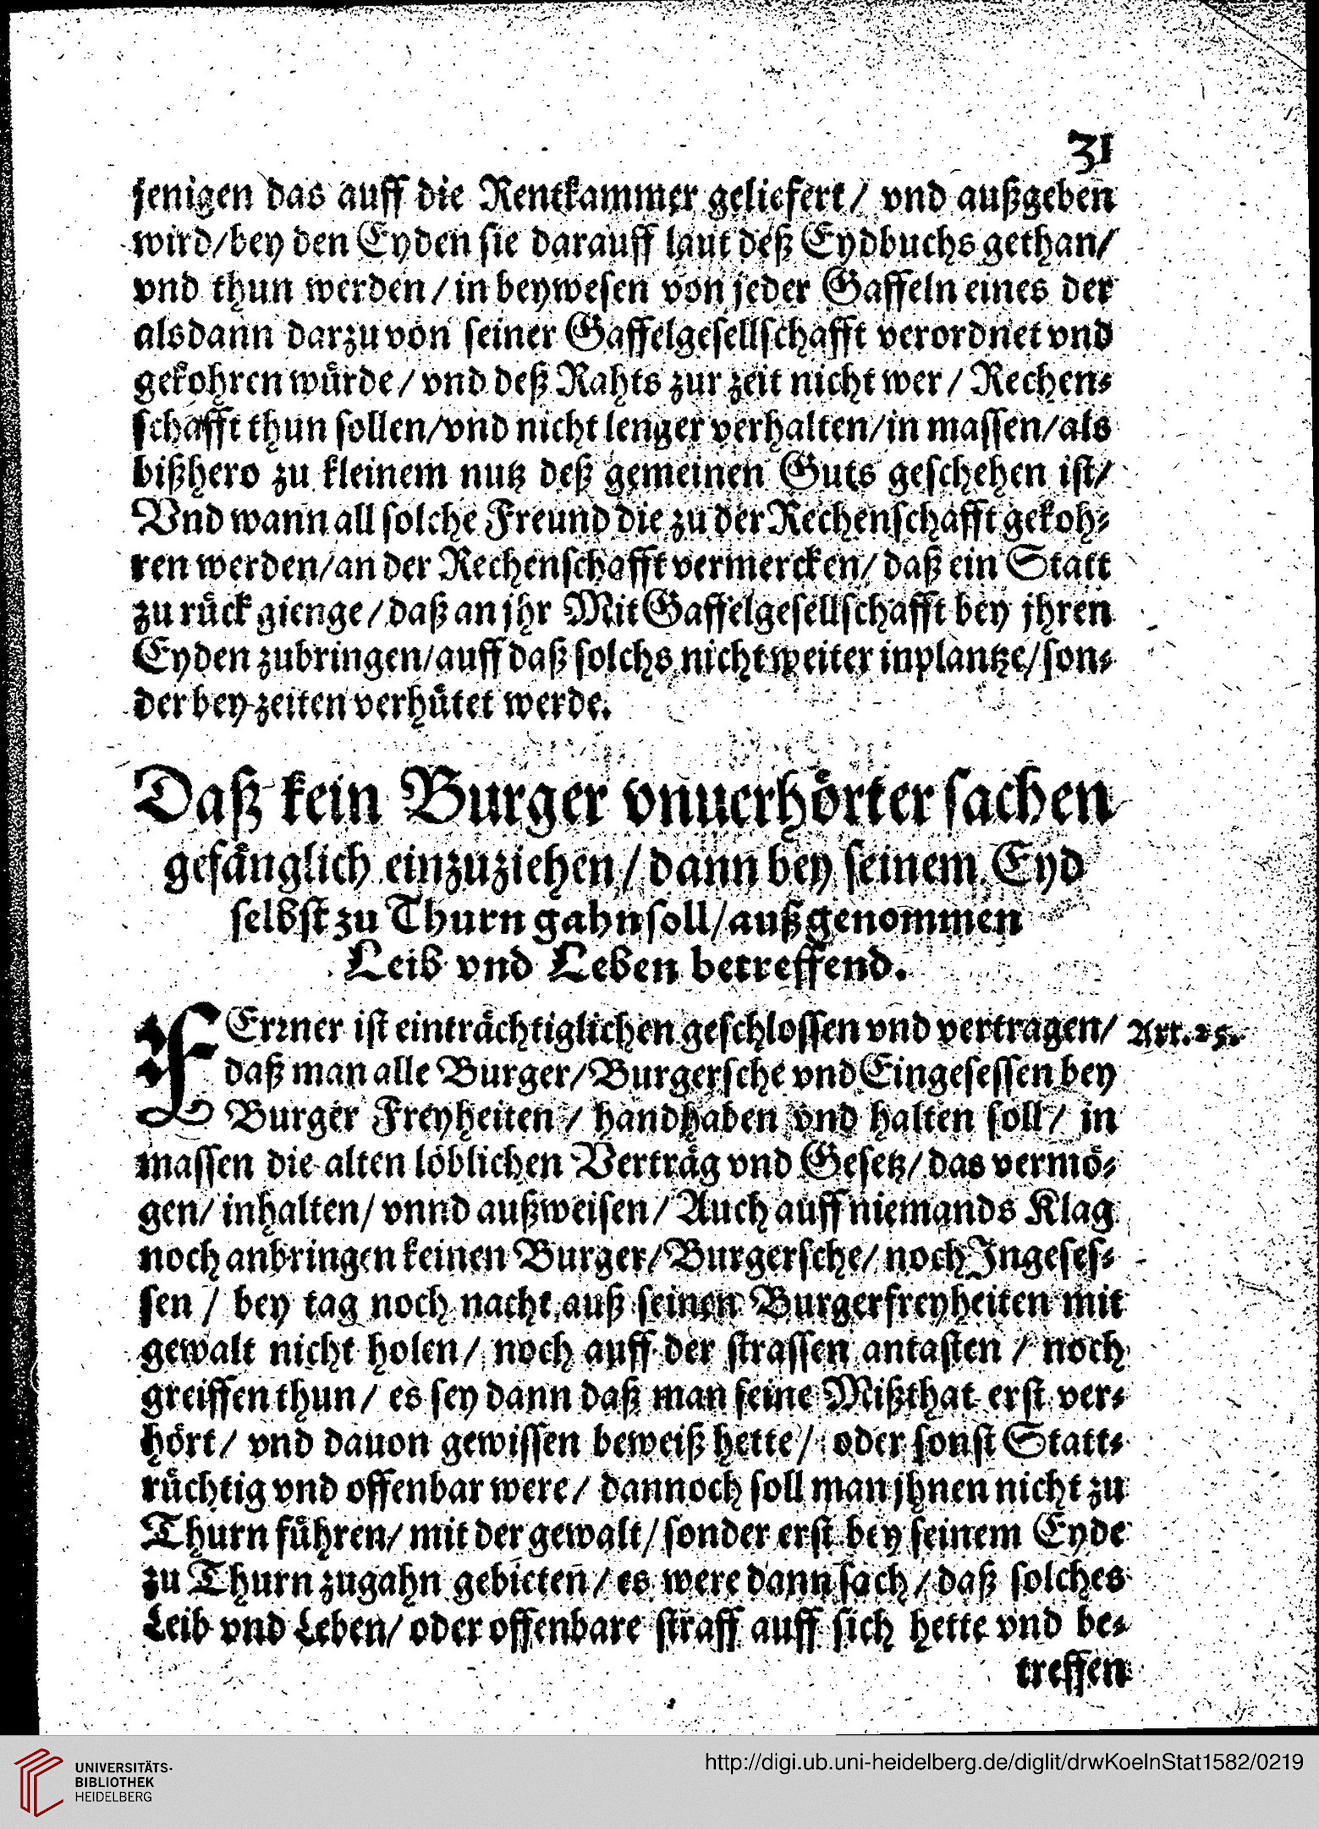 31
jenigen das auff die Rentkammer geliefert / vnd außgeben
wird / bey den Eyden sie darauff laut deß Eydbuchs gethan /
vnd thun werden / in beywesen von jeder Gaffeln eines der
alsdann darzu von seiner Gaffelgesellschafft verordnet vnd
gekohren würde / vnd deß Rahts zur zeit nicht wer / Rechen⸗
schafft thun sollen / vnd nicht lenger verhalten / in massen / als
bißhero zu kleinem nutz deß gemeinen Guts geschehen ist /
Vnd wann all solche Freund die zu der Rechenschafft gekoh⸗
ren werden / an der Rechenschafft vermercken / daß ein Statt
zu rück gienge / daß an jhr Mit Gaffelgesellschafft bey jhren
Eyden zubringen / auff daß solchs nicht weiter inplantze / son⸗
der bey zeiten verhütet werde.
Daß kein Burger vnuerhörter sachen
gefänglich einzuziehen / dann bey seinem Eyd
selbst zu Thurn gahn soll / außgenommen
Leib vnd Leben betreffend.
FErꝛner ist einträchtiglichen geschlossen vnd vertragen / Art. 25.
daß man alle Burger / Burgersche vnd Eingesessen bey
Burger Freyheiten / handhaben vnd halten soll / in
massen die alten löblichen Verträg vnd Gesetz / das vermö⸗
gen / inhalten / vnnd außweisen / Auch auff niemands Klag
noch anbringen keinen Burger / Burgersche / noch Ingeses⸗
sen / bey tag noch nacht auß seinen Burgerfreyheiten mit
gewalt nicht holen / noch auff der strassen antasten / noch
greiffen thun / es sey dann daß man seine Mißthat erst ver⸗
hört / vnd dauon gewissen beweiß hette / oder sonst Statt⸗
rüchtig vnd offenbar were / dannoch soll man jhnen nicht zu
Thurn führen / mit der gewalt / sonder erst bey seinem Eyde
zu Thurn zugahn gebieten / es were dann sach / daß solches
Leib vnd Leben / oder offenbare straff auff sich hette vnd be⸗
treffen
UNIVERSITÄTS-
BIBLIOTHEK
HEIDELBERG
http://digi.ub.uni-heidelberg.de/diglit/drwKoelnStat1582/0219